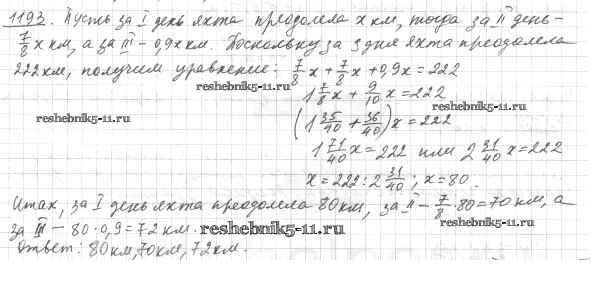 1193. Пусть за I день яхта преодолела x км, тогда за II день –
7/8 x км, а за III – 0,9x км. Поскольку за 3 дня яхта преодолела
222 км, получим уравнение: 7/8 x + 7/8 x + 0,9x = 222
1 7/8 x + 9/10 x = 222
reshebnik5-11.ru
reshebnik5-11.ru
(1 35/40 + 36/40)x = 222
1 71/40 x = 222 или 2 31/40 x = 222
x = 222 : 2 31/40 ; x = 80.
Итак, за I день яхта преодолела 80 км, за II – 7/8 · 80 = 70 км, а
за III – 80 · 0,9 = 72 км.
reshebnik5-11.ru
Ответ: 80 км, 70 км, 72 км.